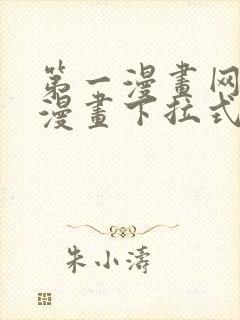 第一漫畫网
漫畫下拉式
朱小濤